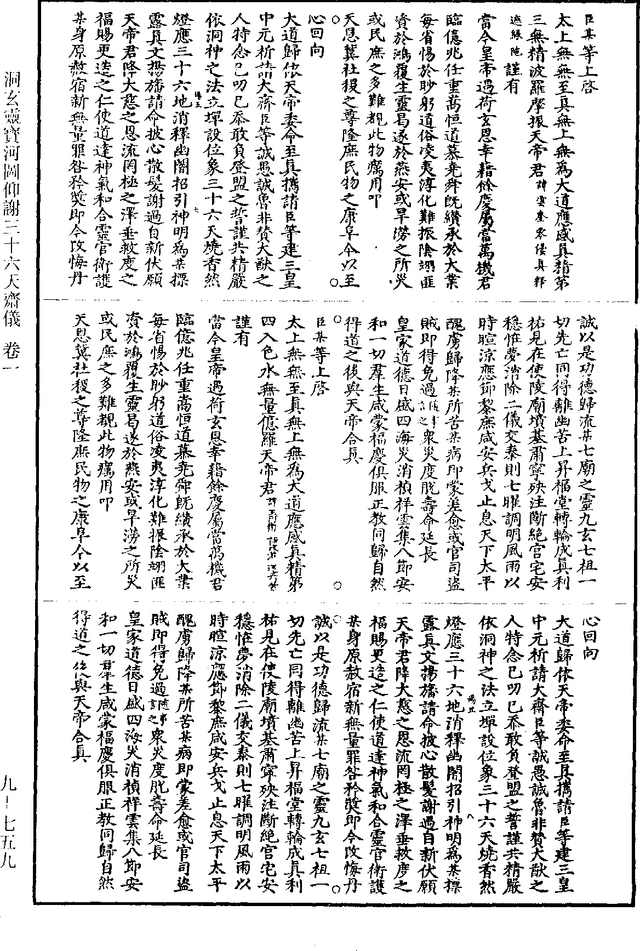 臣某等上啓
太上無無至真無上無為大道應感真精第
三無精波羅摩振天帝君
謹有
當今皇帝過荷玄恩幸藉餘慶屬當萬機君
臨億兆任重萬恒道慕堯舜既纘承於大業
每省惕於眇躬道俗凌夷淳化難振陰翊匪
資於鴻覆生靈曷遂於燕安或旱澇之所災
或民庶之多難覩此物癘用叩
天恩冀社稷之尊隆庶民物之康阜今以至
心回向
大道歸依天帝委命至真攜請臣等建三皇
中元祈請大齋臣等誠愚誠魯非贊大猷之
人特念已叨已忝敢負登盟之誓謹共精嚴
依洞神之法立壇設位象三十六天燒香然
燈應三十六地消釋幽闇招引神明為某標
露真文揚旛請命披心散髮謝過自新伏願
天帝君降大慈之恩流罔極之澤垂救度之
福賜更造之仁使道達神氣和合靈官衛護
某身原赦宿新無量罪咎矜獎即今改悔丹
誠以是功德歸流某七廟之靈九玄七祖一
切先亡同得離幽苦上昇福堂轉輪成真利
祐見在使陵廟墳墓肅寧殃注斷絕宮宅安
穩怪夢消除二儀交泰則七曜調明風雨以
時暄涼應節黎庶咸安兵戈止息天下太平
醜虜歸降某所苦某病即蒙差愈或官司盜
賊即得免過隨事眾災度脫壽命延長
皇家道德日盛四海災消禎祥雲集八節安
和一切羣生咸蒙福慶俱服正教同歸自然
得道之後與天帝合真
臣某等上啓
太上無無至真無上無為大道應感真精第
四入色水無量億羅天帝君
謹有
當今皇帝過荷玄恩幸藉餘慶屬當萬機君
臨億兆任重萬恒道慕堯舜既纘承於大業
每省惕於眇躬道俗凌夷淳化難振陰翊匪
資於鴻覆生靈曷遂於燕安或旱澇之所災
或民庶之多難覩此物癘用叩
天恩冀社稷之尊隆庶民物之康阜今以至
心回向
大道歸依天帝委命至真攜請臣等建三皇
中元祈請大齋臣等誠愚誠魯非贊大猷之
人特念已叨已忝敢負登盟之誓謹共精嚴
依洞神之法立壇設位象三十六天燒香然
燈應三十六地消釋幽闇招引神明為某標
露真文揚旛請命披心散髮謝過自新伏願
天帝君降大慈之恩流罔極之澤垂救度之
福賜更造之仁使道達神氣和合靈官衛護
某身原赦宿新無量罪咎矜獎即今改悔丹
誠以是功德歸流某七廟之靈九玄七祖一
切先亡同得離幽苦上昇福堂轉輪成真利
祐見在使陵廟墳墓肅寧殃注斷絕宮宅安
穩怪夢消除二儀交泰則七曜調明風雨以
時暄涼應節黎庶咸安兵戈止息天下太平
醜虜歸降某所苦某病即蒙差愈或官司盜
賊即得免過隨事眾災度脫壽命延長
皇家道德日盛四海災消禎祥雲集八節安
和一切羣生咸蒙福慶俱服正教同歸自然
得道之後與天帝合真
洞玄靈寶河圖仰謝三十六天齋儀 卷一
九－七五九